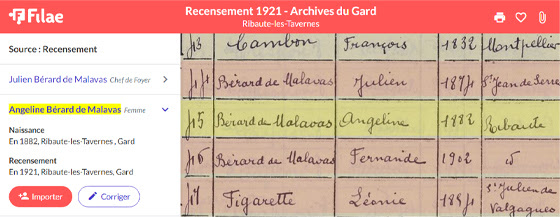 Filae
Recensement 1921 - Archives du Gard
Ribaute-les-Tavernes
Source : Recensement
Julien Bérard de Malavas Chef de Foyer
Angeline Bérard de Malavas Femme
Naissance
En 1882, Ribaute-les-Tavernes , Gard
Recensement
En 1921, Ribaute-les-Tavernes, Gard
Importer
Corriger
Cambon François 1832 Montpellier
Bérard de Malavas Julien St Jean de Serre
Bérard de Malavas Angéline 1882 Ribaute
Bérard de Malavas Fernande 1902 id
Figarette Léonie St Julien de
Valgagues